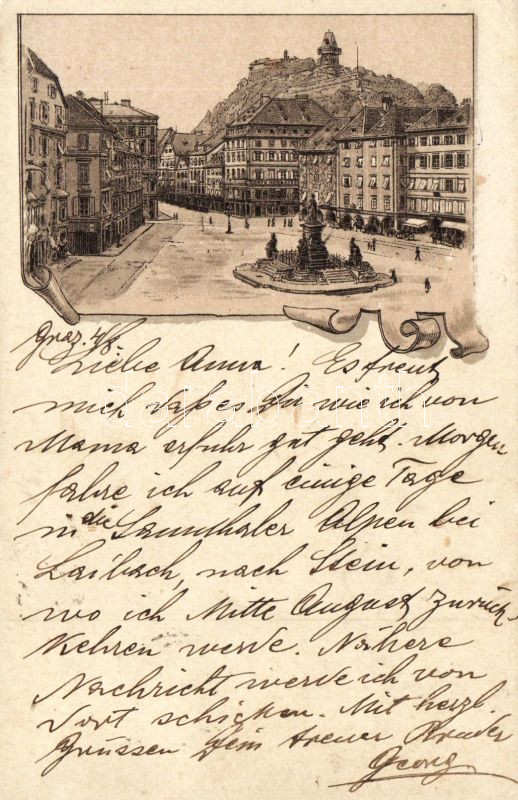 Graz. 4/8.
Liebe Anna! Es freut
mich daß es Dir wie ich von
Mama erfuhr gut geht. Morgen
fahre ich auf einige Tage
in die Sannthaler Alpen bei
Laibach, nach Stein, von
wo ich Mitte August zurück-
kehren werde. Nähere
Nachricht werde ich von
dort schicken. Mit herzl.
Grüssen Dein treuer Bruder
Georg